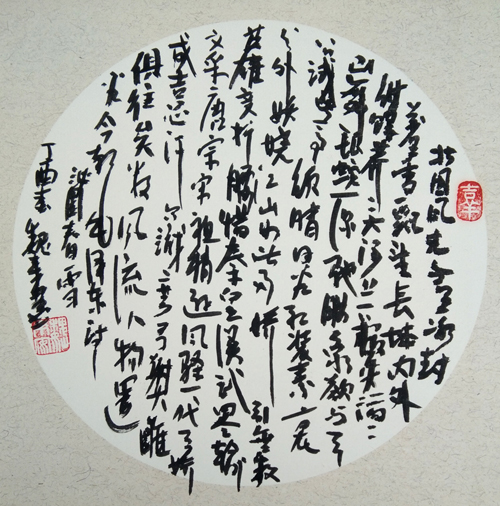 北国风光千里冰封
万里雪飘望长城内外
惟余莽莽大河上下顿失滔滔
山舞银蛇原驰腊象欲与天
公试比高须晴日看红装素裹
分外妖娆江山如此多娇引无数
英雄竞折腰惜秦皇汉武略输
文采唐宗宋祖稍逊风骚一代天骄
成吉思汗只识弯弓射大雕
俱往矣数风流人物还
看今朝毛泽东诗
沁园春雪
丁酉春魏